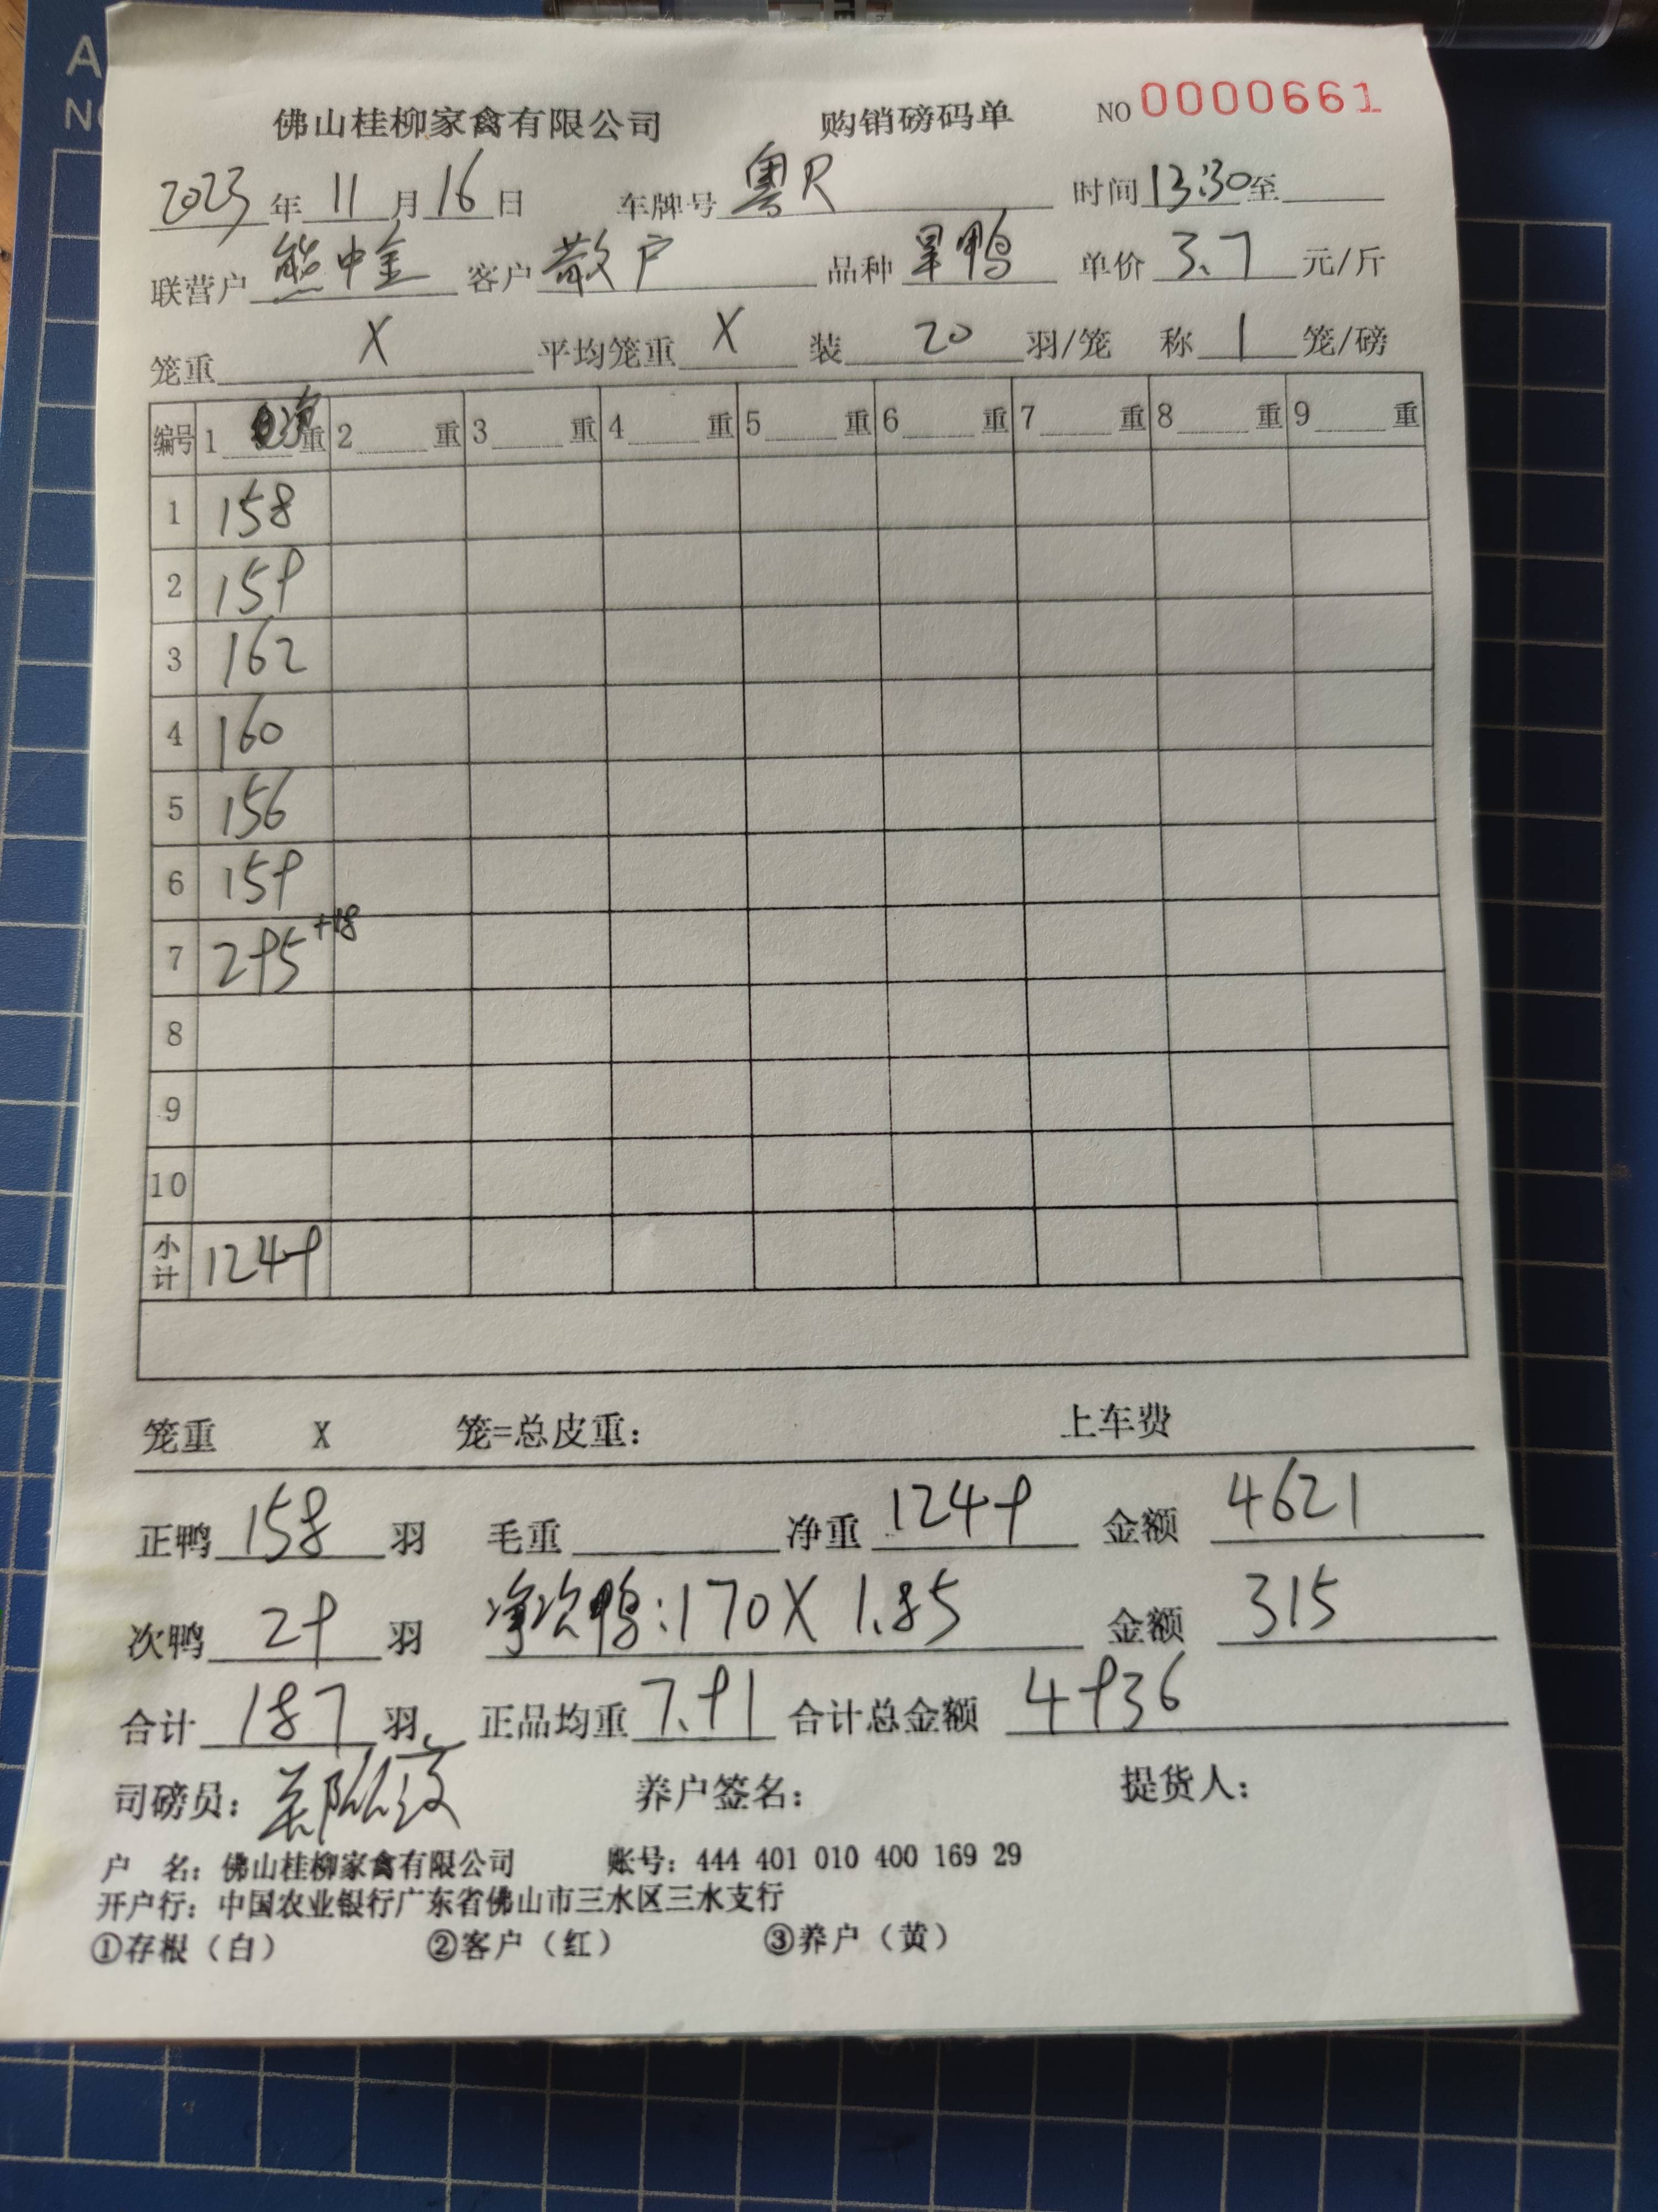 佛山桂柳家禽有限公司 购销磅码单 NO 0000661
2023年11月16日 车牌号 粤R 时间 13:30至
联营户 熊中金 客户 散户 品种 旱鸭 单价 3.7 元/斤
笼重 X 平均笼重 X 装 20 羽/笼 称 1 笼/磅
编号 1 重 2 重 3 重 4 重 5 重 6 重 7 重 8 重 9 重
1 158
2 159
3 162
4 160
5 156
6 159
7 295 +18
8
9
10
小计 1249
笼重 X 笼=总皮重: 上车费
正鸭 158 羽 毛重 净重 1249 金额 4621
次鸭 29 羽 净次鸭:170X1.85 金额 315
合计 187 羽 正品均重 7.91 合计总金额 4936
司磅员: 养户签名: 提货人:
户 名: 佛山桂柳家禽有限公司 账号: 444 401 010 400 169 29
开户行: 中国农业银行广东省佛山市三水区三水支行
①存根（白） ②客户（红） ③养户（黄）